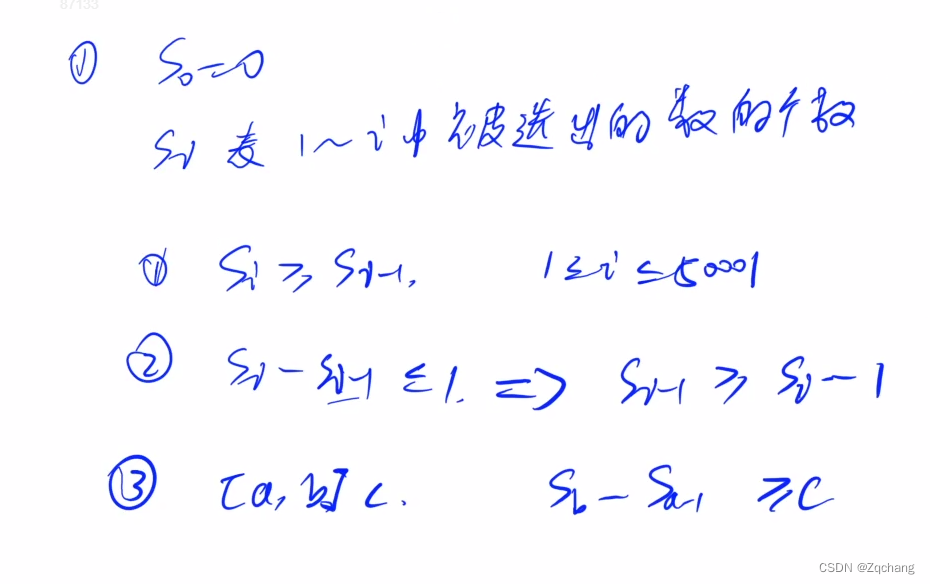 87133
① S₀=0
Sᵢ 表 1~i 中被选出的数的个数
① Sᵢ ≥ Sᵢ₋₁, 1≤i≤50001
② Sᵢ - Sᵢ₋₁ ≤ 1. => Sᵢ₋₁ ≥ Sᵢ - 1
③ [a, b] c. S_b - Sₐ₋₁ ≥ c
CSDN @Zqchang